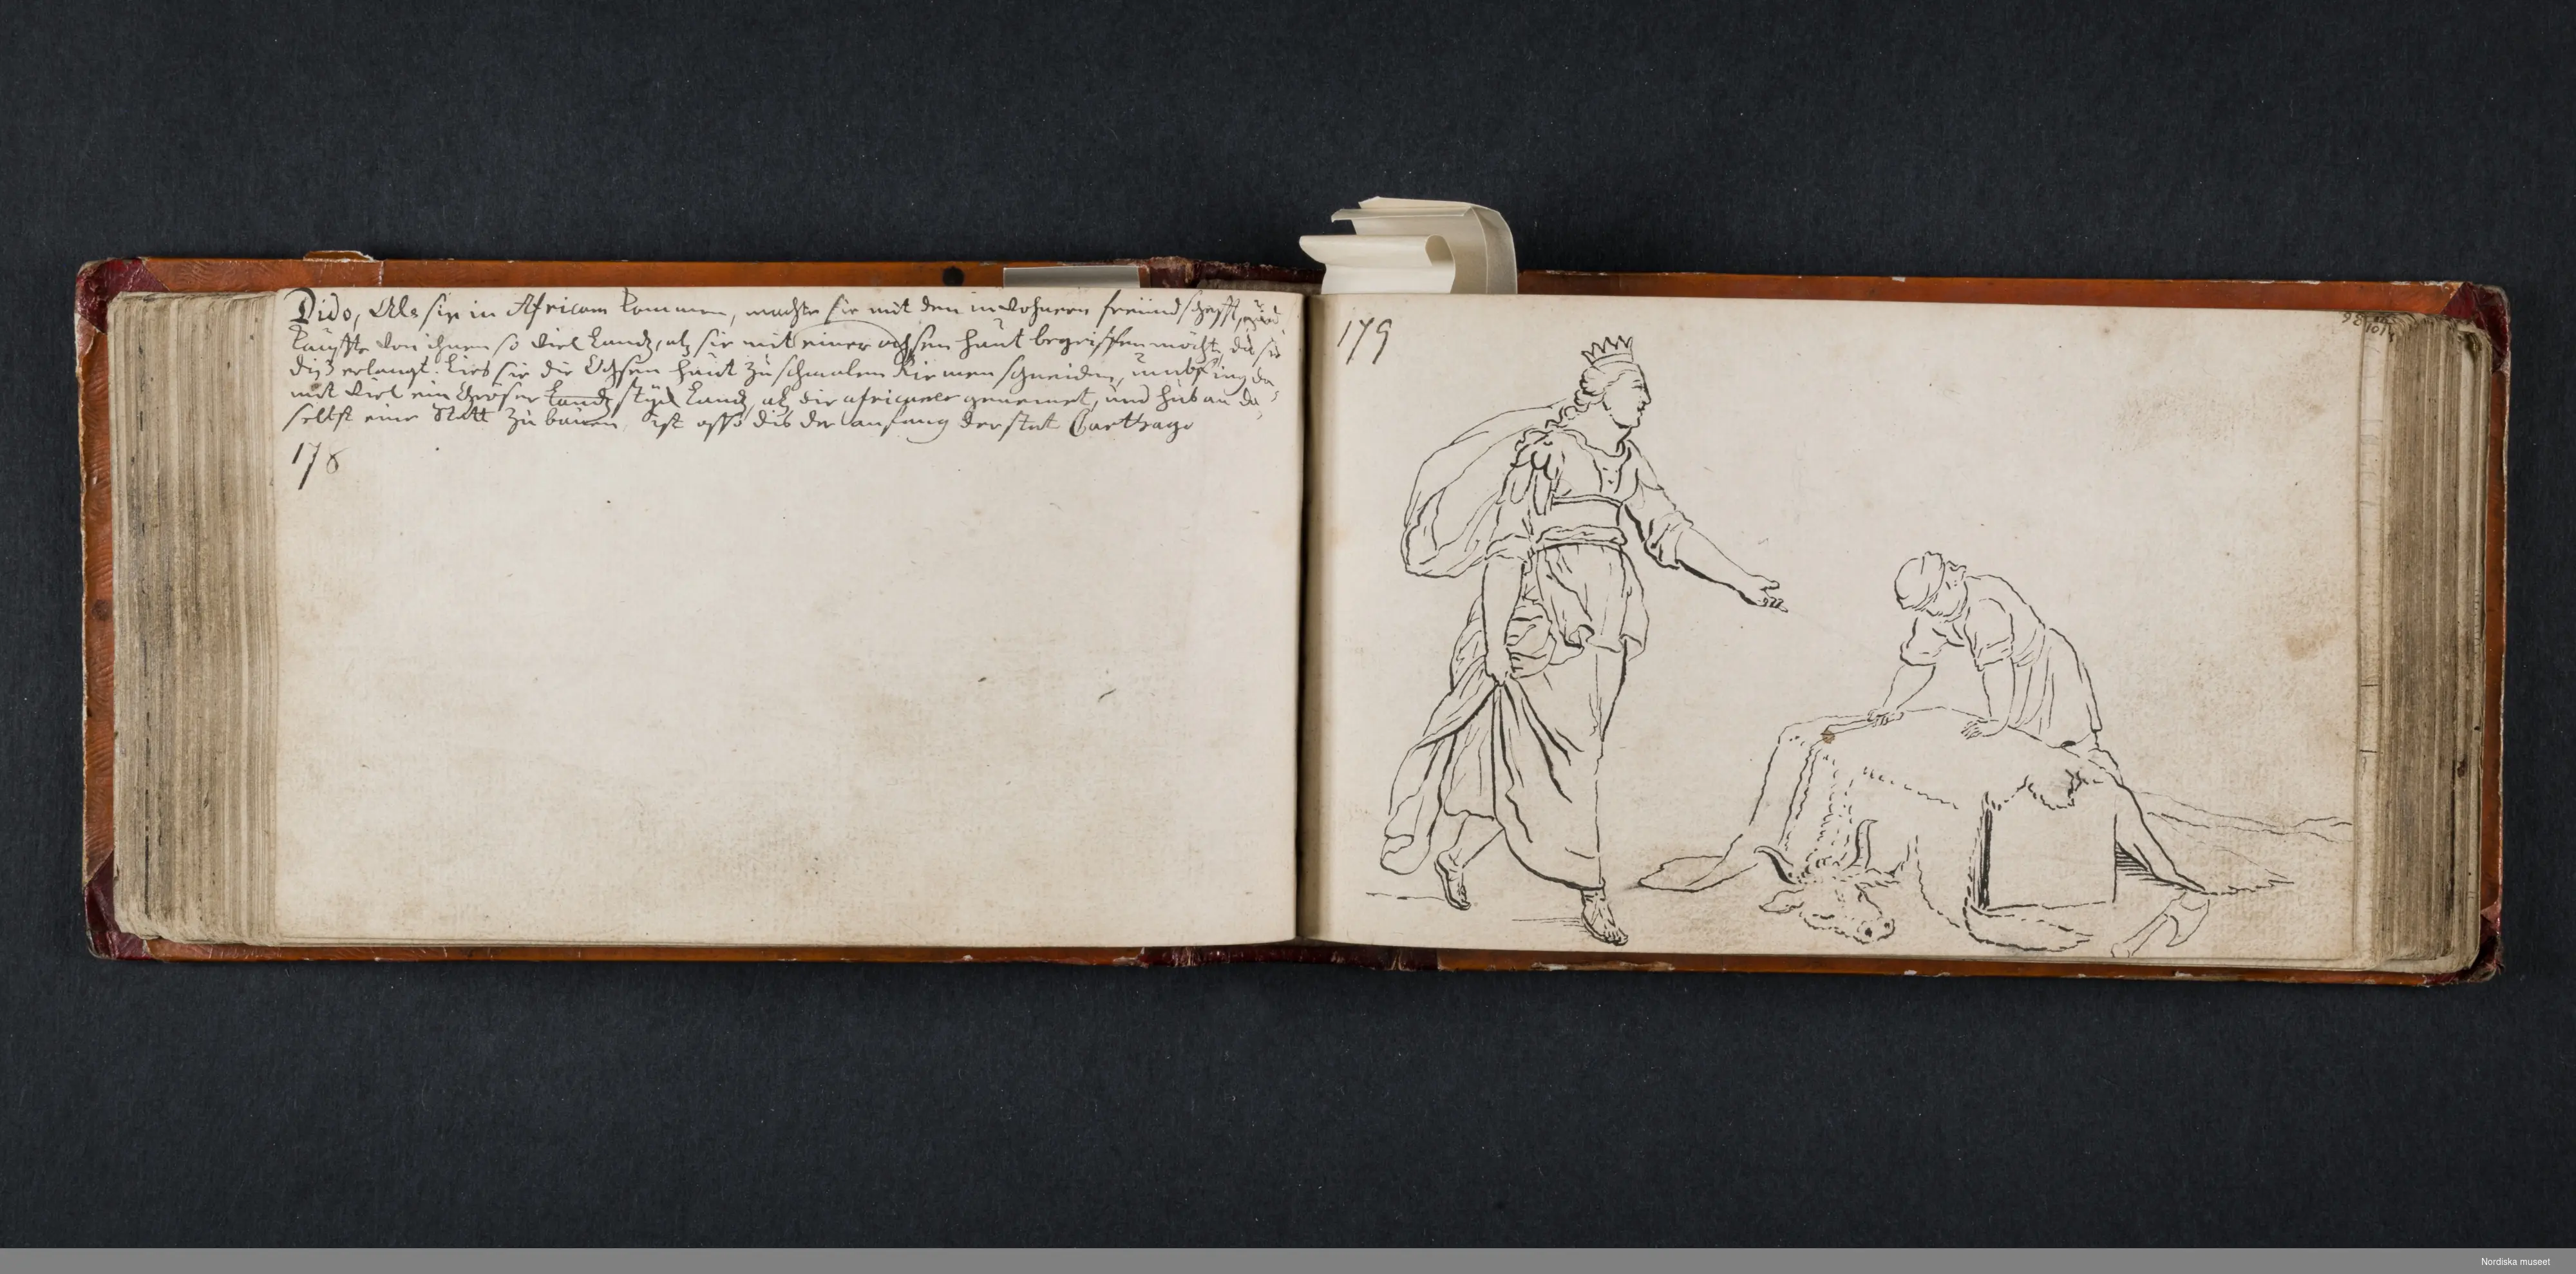 Dido, Als sie in Africam kommen, machte sie mit den inwohnern freündschafft, und
kauffte von ihnen so viel Landz, alß sie mit einer ochsen haüt begreiffen möcht, da sie
diß erlangt. Lies sie die Ochsen haüt zu schmalen Riemen schneiden, umbfing da
mit viel ein Gröser stück Landz, alß die africaner gemeinet, und hub an da,
selbst eine Statt zu bauen, ist also dis der anfang der stat Carthago
178
179